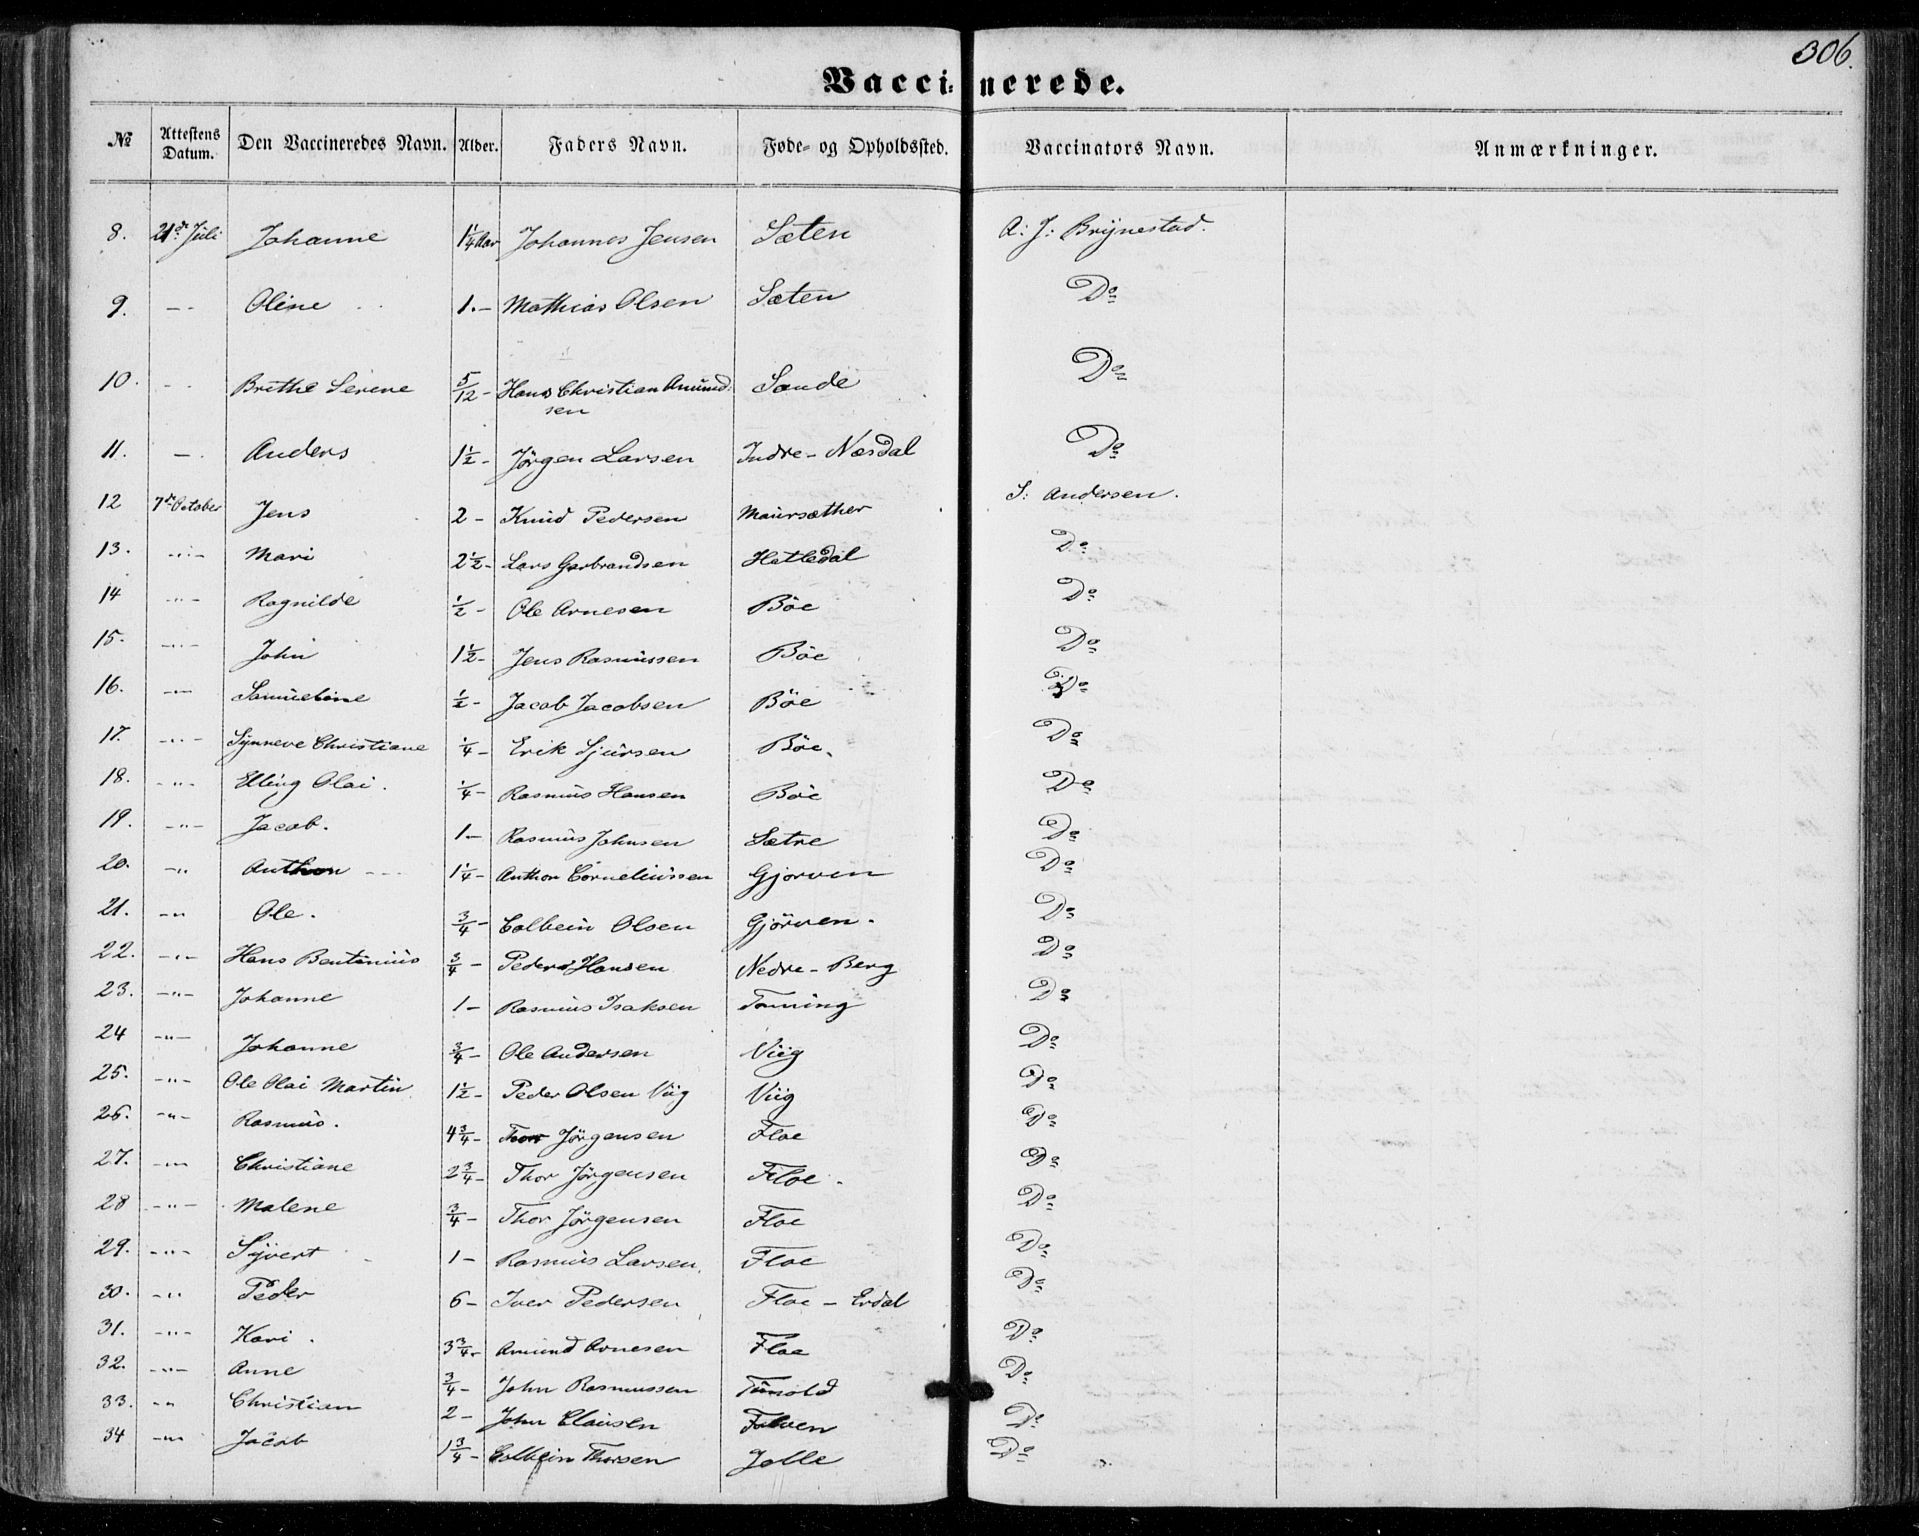 306.
Vaccinerede.
№ Attestens Datum. Den Vaccineredes Navn. Alder. Faders Navn. Føde- og Opholdssted. Vaccinators Navn. Anmærkninger.
8. 21de Juli Johanne 1¼ Aar Johannes Jensen Sæten A: J: Brynestad.
9. -- Oline 1.- Mathias Olsen Sæten Do
10. -- Brithe Serene 5/12- Hans Christian Amund-
sen Sande Do
11. -- Anders 1½- Jörgen Larsen Indre-Næsdal Do
12 7de October Jens 2- Knud Pedersen Maursæther S: Andersen.
13. -"- Mari 2½- Lars Garbrandsen Hatledal Do
14 -"- Ragnilde ½- Ole Arnesen Böe Do
15. -"- John 1½- Jens Rasmussen Böe Do
16. -"- Samueline ½- Jacob Jacobsen Böe Do
17. -"- Synneve Christiane ¼- Erik Sjursen Böe. Do
18. -"- Elling Olai. ¼- Rasmus Hansen Böe Do
19. -"- Jacob. 1.- Rasmus Johnsen Sætre Do
20. -" Anthon 1¼- Anthon Corneliussen Gjörven Do
21. -" Ole. ¾- Colbein Olsen Gjörven. Do
22. -"- Hans Bentinius ¾- Peder Hansen Nedre-Berg Do
23. -"- Johanne 1- Rasmus Isaksen Tonning Do
24 -"- Johanne ¾- Ole Andersen Viig Do
25. -"- Ole Olai Martin 1½- Peder Olsen Viig Viig Do
26. -"- Rasmus. 4¾- Thor Jörgensen Floe Do
27. -"- Christiane 2¾- Thor Jörgensen Floe. Do
28 -"- Malene ¾- Thor Jörgensen Floe Do
29. -"- Syvert 1- Rasmus Larsen. Floe Do
30. -" Peder 6- Iver Pedersen Floe-Erdal Do
31. -"- Kari. 3¾- Amund Arnesen Floe Do
32. -"- Anne ¾- John Rasmussen Do
33. -" Christian 2- John Clausen Folven Do
34 -"- Jacob 1¾- Colbein Thorsen Jolle Do